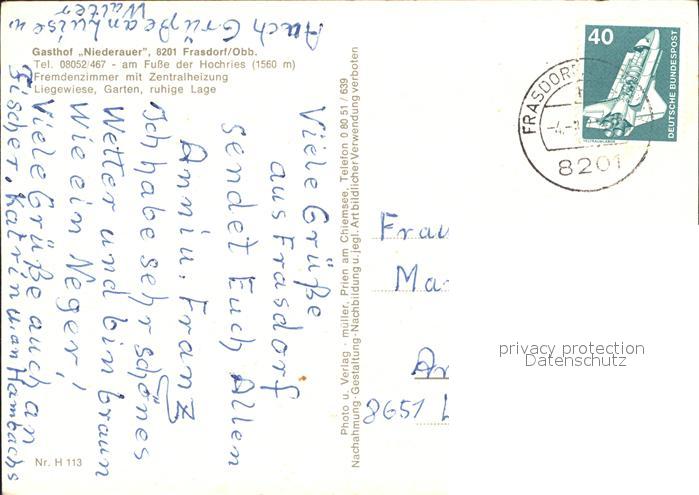 Auch Grüße an Luise u.
Walter
Gasthof „Niederauer", 8201 Frasdorf/Obb.
Tel. 08052/467 - am Fuße der Hochries (1560 m)
Fremdenzimmer mit Zentralheizung
Liegewiese, Garten, ruhige Lage
Viele Grüße
aus Frasdorf
sendet Euch Allen
Anni u. Franz
Ich habe sehr schönes
Wetter und bin braun
wie ein Neger!
Viele Grüße auch an
Fischer, Katrin u. an Hambachs
Nr. H 113
Photo u. Verlag - müller, Prien am Chiemsee, Telefon 0 80 51 / 639
Nachahmung-Gestaltung-Nachbildung u. jegl. Art bildlicher Verwendung verboten
40
DEUTSCHE BUNDESPOST
WELTRAUMLABOR
FRASDORF
8201
Frau
Ma
8651
privacy protection
Datenschutz